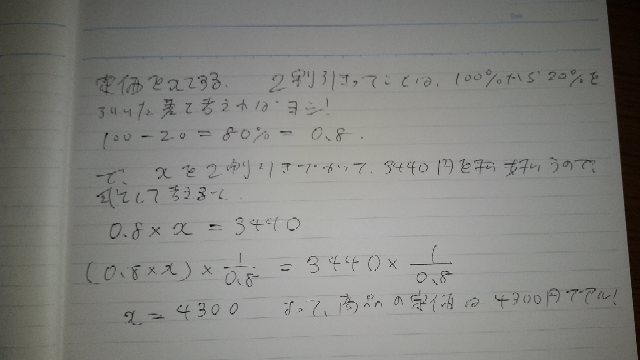 定価をxとする. 2割引きってことは, 100%から20%を
考えればヨシ!
100-20=80%=0.8.
で, xを2割引き 3440円を
考えると
0.8×x=3440
(0.8×x)×1/0.8=3440×1/0.8
x=4300 よって, 商品の定価は4300円である!